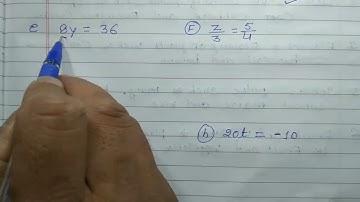 e 8y = 36
(f) z/3 = 5/4
(h) 20t = -10